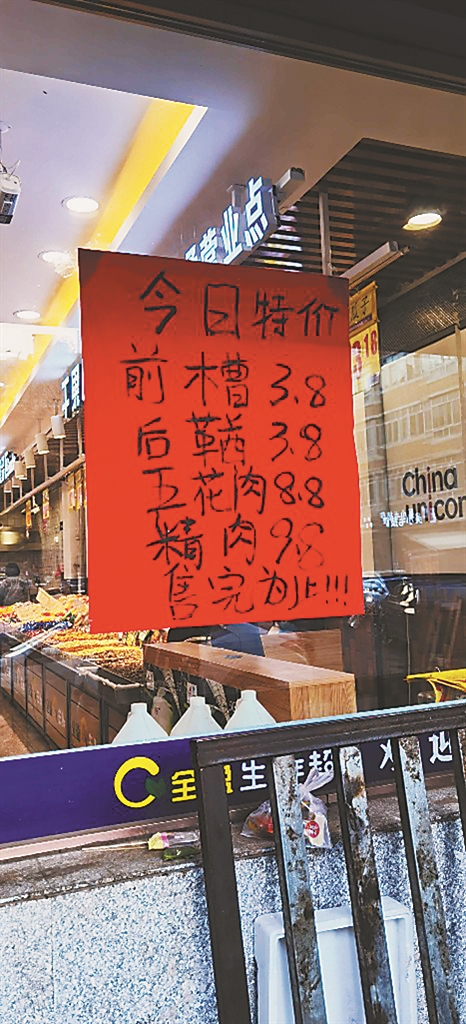 营业点
今日特价
前槽 3.8
后鞧 3.8
五花肉 8.8
精肉 9.8
售完为止!!!
China
unicom
全
生鲜超